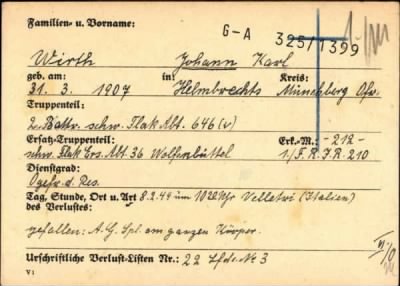 Familien- u. Vorname:
G-A 325/1399
Wirth Johann Karl
geb. am: in: Kreis:
31. 3. 1907 Helmbrechts Münchberg Ofr.
Truppenteil:
2. Battr. schw. Flak Abt. 646 (v)
Ersatz-Truppenteil: Erk.-M.: -212-
schw. Flak Ers. Abt 36 Wolfenbüttel 1./F.R.I.R. 210
Dienstgrad:
Ogefr. d. Res.
Tag, Stunde, Ort u. Art 8.2.44 um 1020 Uhr Velletri (Italien)
des Verlustes:
gefallen: A.G. Spl. am ganzen Körper.
Urschriftliche Verlust-Listen Nr.: 22 Lfde Nr 3
V I